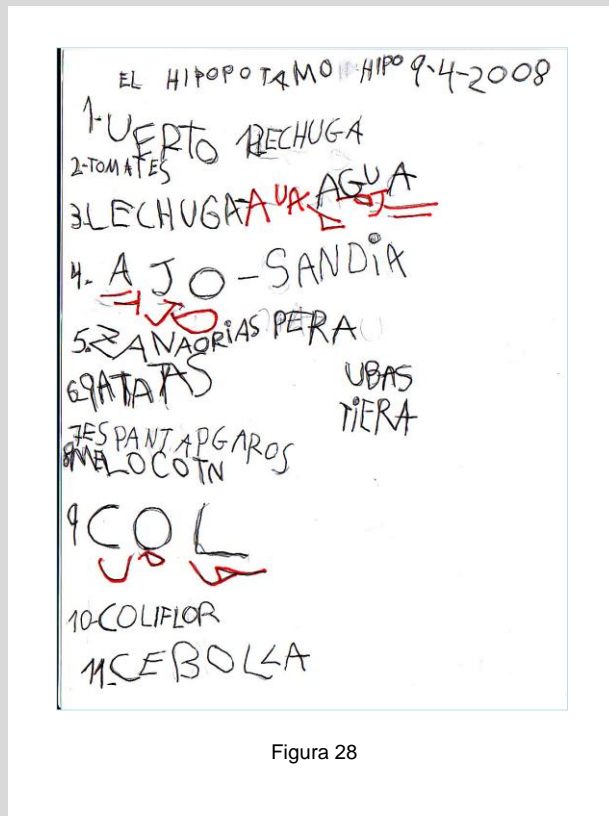 EL HIPOPOTAMO HIPO 9-4-2008
1-UERTO 12LECHUGA
2-TOMATES
3-LECHUGA-AUA AGUA
4- AJO-SANDIA
AJO
5-ZANAORIAS PERA
6-PATATAS UBAS
TIERA
7-ESPANTAPGAROS
8-MELOCOTN
9-COL
10-COLIFLOR
11-CEBOLLA
Figura 28